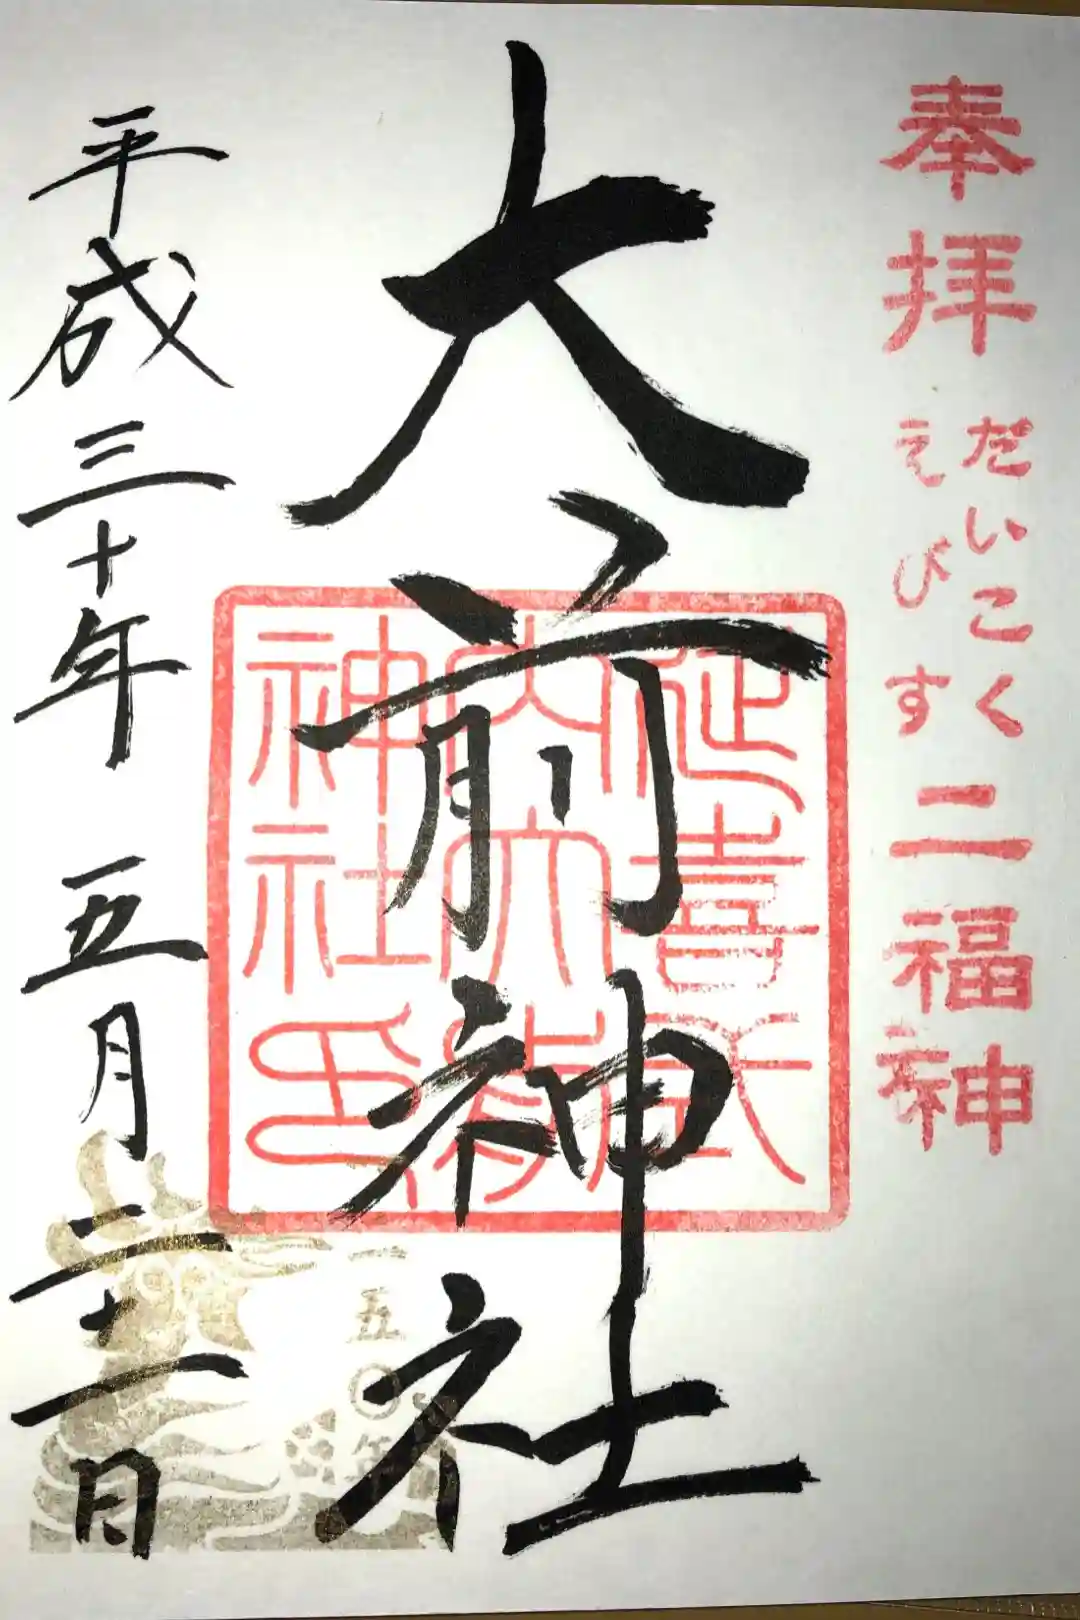 奉拝
だいこく
えびす
二福神
大前神社
延喜式
内大前
神社印
平成三十年 五月二十一日
一五〇年